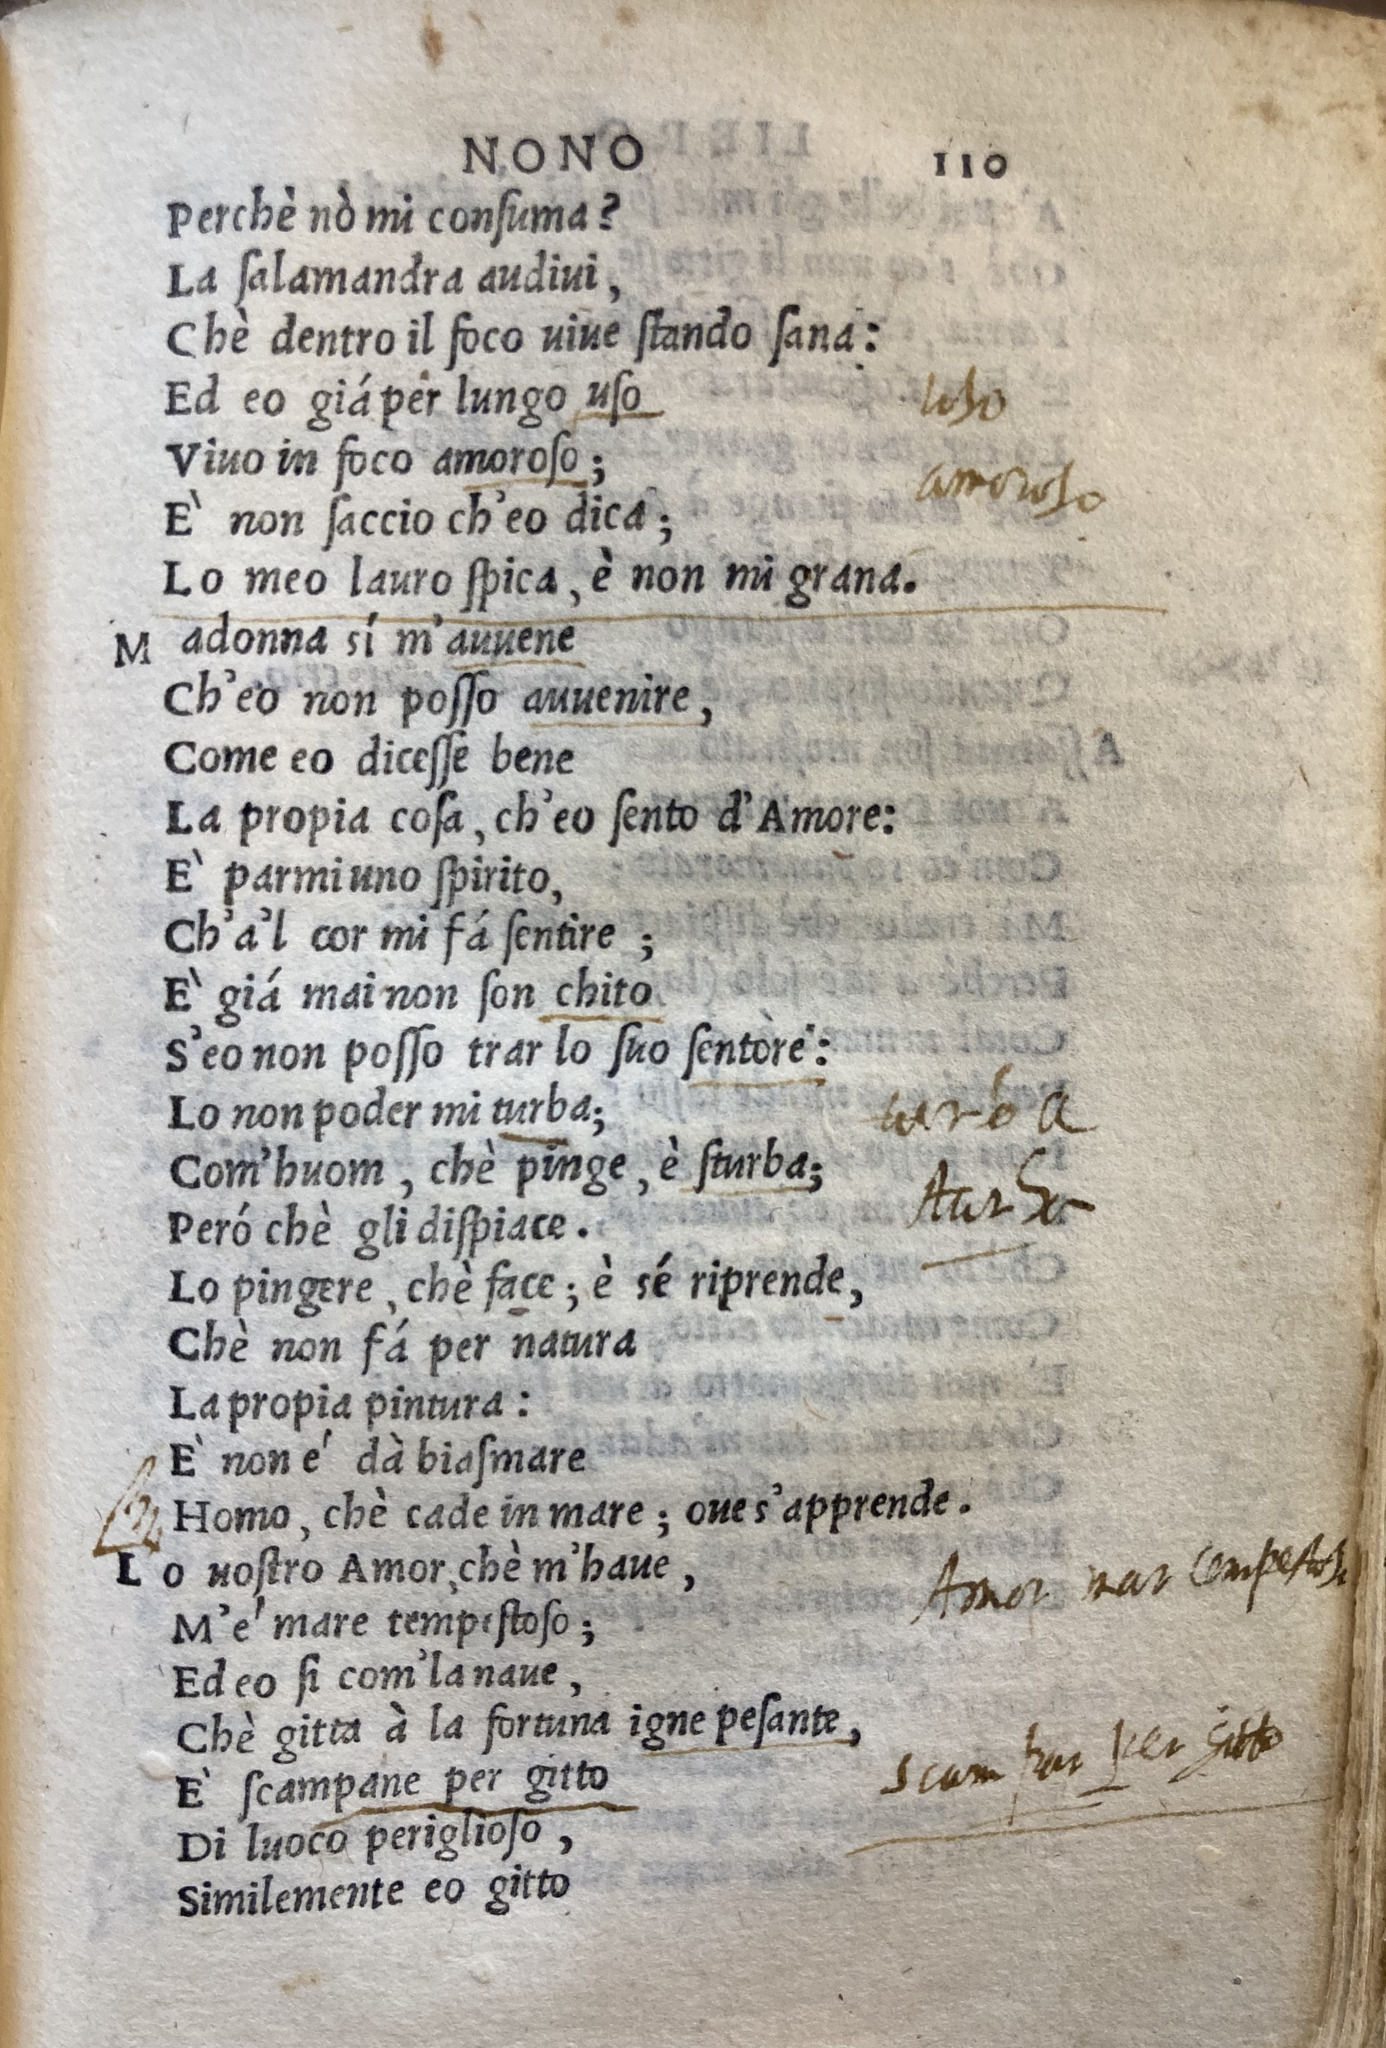 NONO 110
Perchè nò mi conſuma?
La ſalamandra audiui,
Chè dentro il foco uiue ſtando ſana:
Ed eo giá per lungo uſo
uso
Viuo in foco amoroſo;
amoroso
E` non ſaccio ch'eo dica;
Lo meo lauro ſpica, è non mi grana.
Madonna sí m'auuene
Ch'eo non poſſo auuenire,
Come eo diceſſe bene
La propia coſa, ch'eo ſento d'Amore:
E` parmi uno ſpirito,
Ch'a'l cor mi fá ſentire;
E` giá mai non ſon chito
S'eo non poſſo trar lo ſuo ſentòre:
Lo non poder mi turba;
turba
Com'huom, chè pinge, è ſturba;
sturba
Peró chè gli diſpiace.
Lo pingere, chè face; è sé riprende,
Chè non fá per natura
La propia pintura:
E` non é dà biaſmare
Homo, chè cade in mare; oue s'apprende.
Lo uoſtro Amor, chè m'haue,
Amor mar tempestoso
M'é mare tempeſtoſo;
Ed eo ſi com'la naue,
Chè gitta à la fortuna igne peſante,
E` scampane per gitto
scampar per gitto
Di luoco periglioſo,
Similemente eo gitto